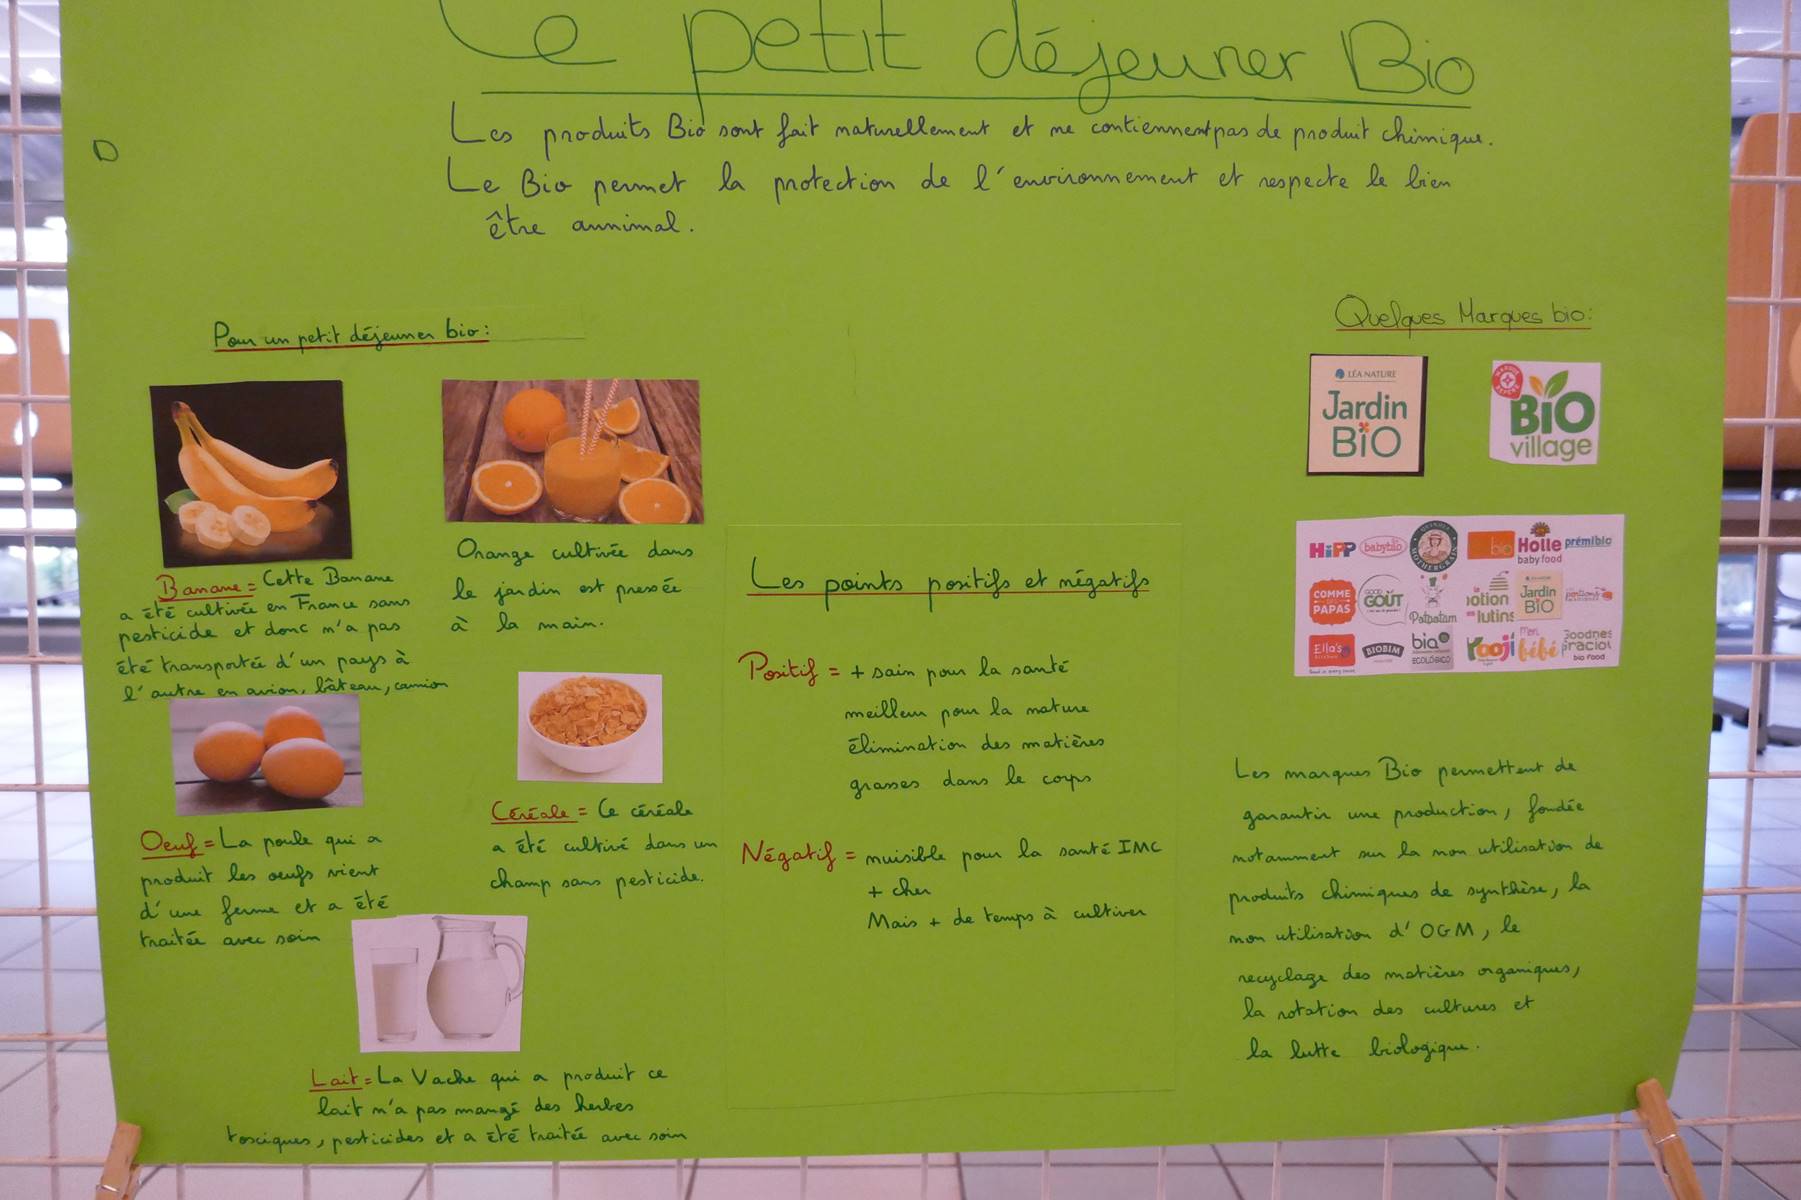 Le petit déjeuner Bio
Les produits Bio sont fait naturellement et ne contiennent pas de produit chimique.
Le Bio permet la protection de l'environnement et respecte le bien
être annimal.
Pour un petit déjeuner bio:
Banane = Cette Banane
a été cultivée en France sans
pesticide et donc n'a pas
été transportée d'un pays à
l'autre en avion, bâteau, camion
Orange cultivée dans
le jardin est pressée
à la main.
Oeuf = La poule qui a
produit les oeufs vient
d'une ferme et a été
traitée avec soin
Céréale = Ce céréale
a été cultivé dans un
champ sans pesticide.
Lait = La Vache qui a produit ce
lait n'a pas mangé des herbes
toxciques, pesticides et a été traitée avec soin
Les points positifs et négatifs
Positif = + sain pour la santé
meilleur pour la nature
élimination des matières
grasses dans le corps
Négatif = nuisible pour la santé IMC
+ cher
Mais + de temps à cultiver
Quelques Marques bio:
LÉA NATURE
Jardin
BiO
BiO
village
HiPP babybio bio Holle prémibio
baby food
COMME
DES
PAPAS
GOOD
GOÛT
Patpatam
potion
lutins
Jardin
BiO
Ella's
BIOBIM
bia
ECOLÓGICO
Yooji
Mon
bébé
Goodnes
Gracio
bio food
Les marques Bio permettent de
garantir une production, fondée
notamment sur la non utilisation de
produits chimiques de synthèse, la
non utilisation d'OGM, le
recyclage des matières organiques,
la rotation des cultures et
la lutte biologique.